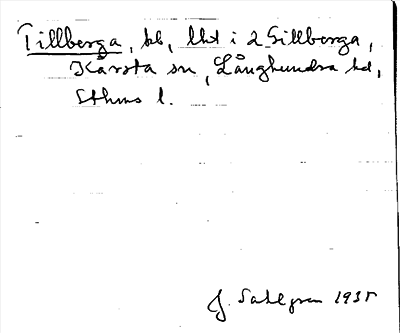 Tillberga, bb, lht i 2 Sillberga,
Kårsta sn, Långhundra hd,
Sthms l.
J. Sahlgren 1935